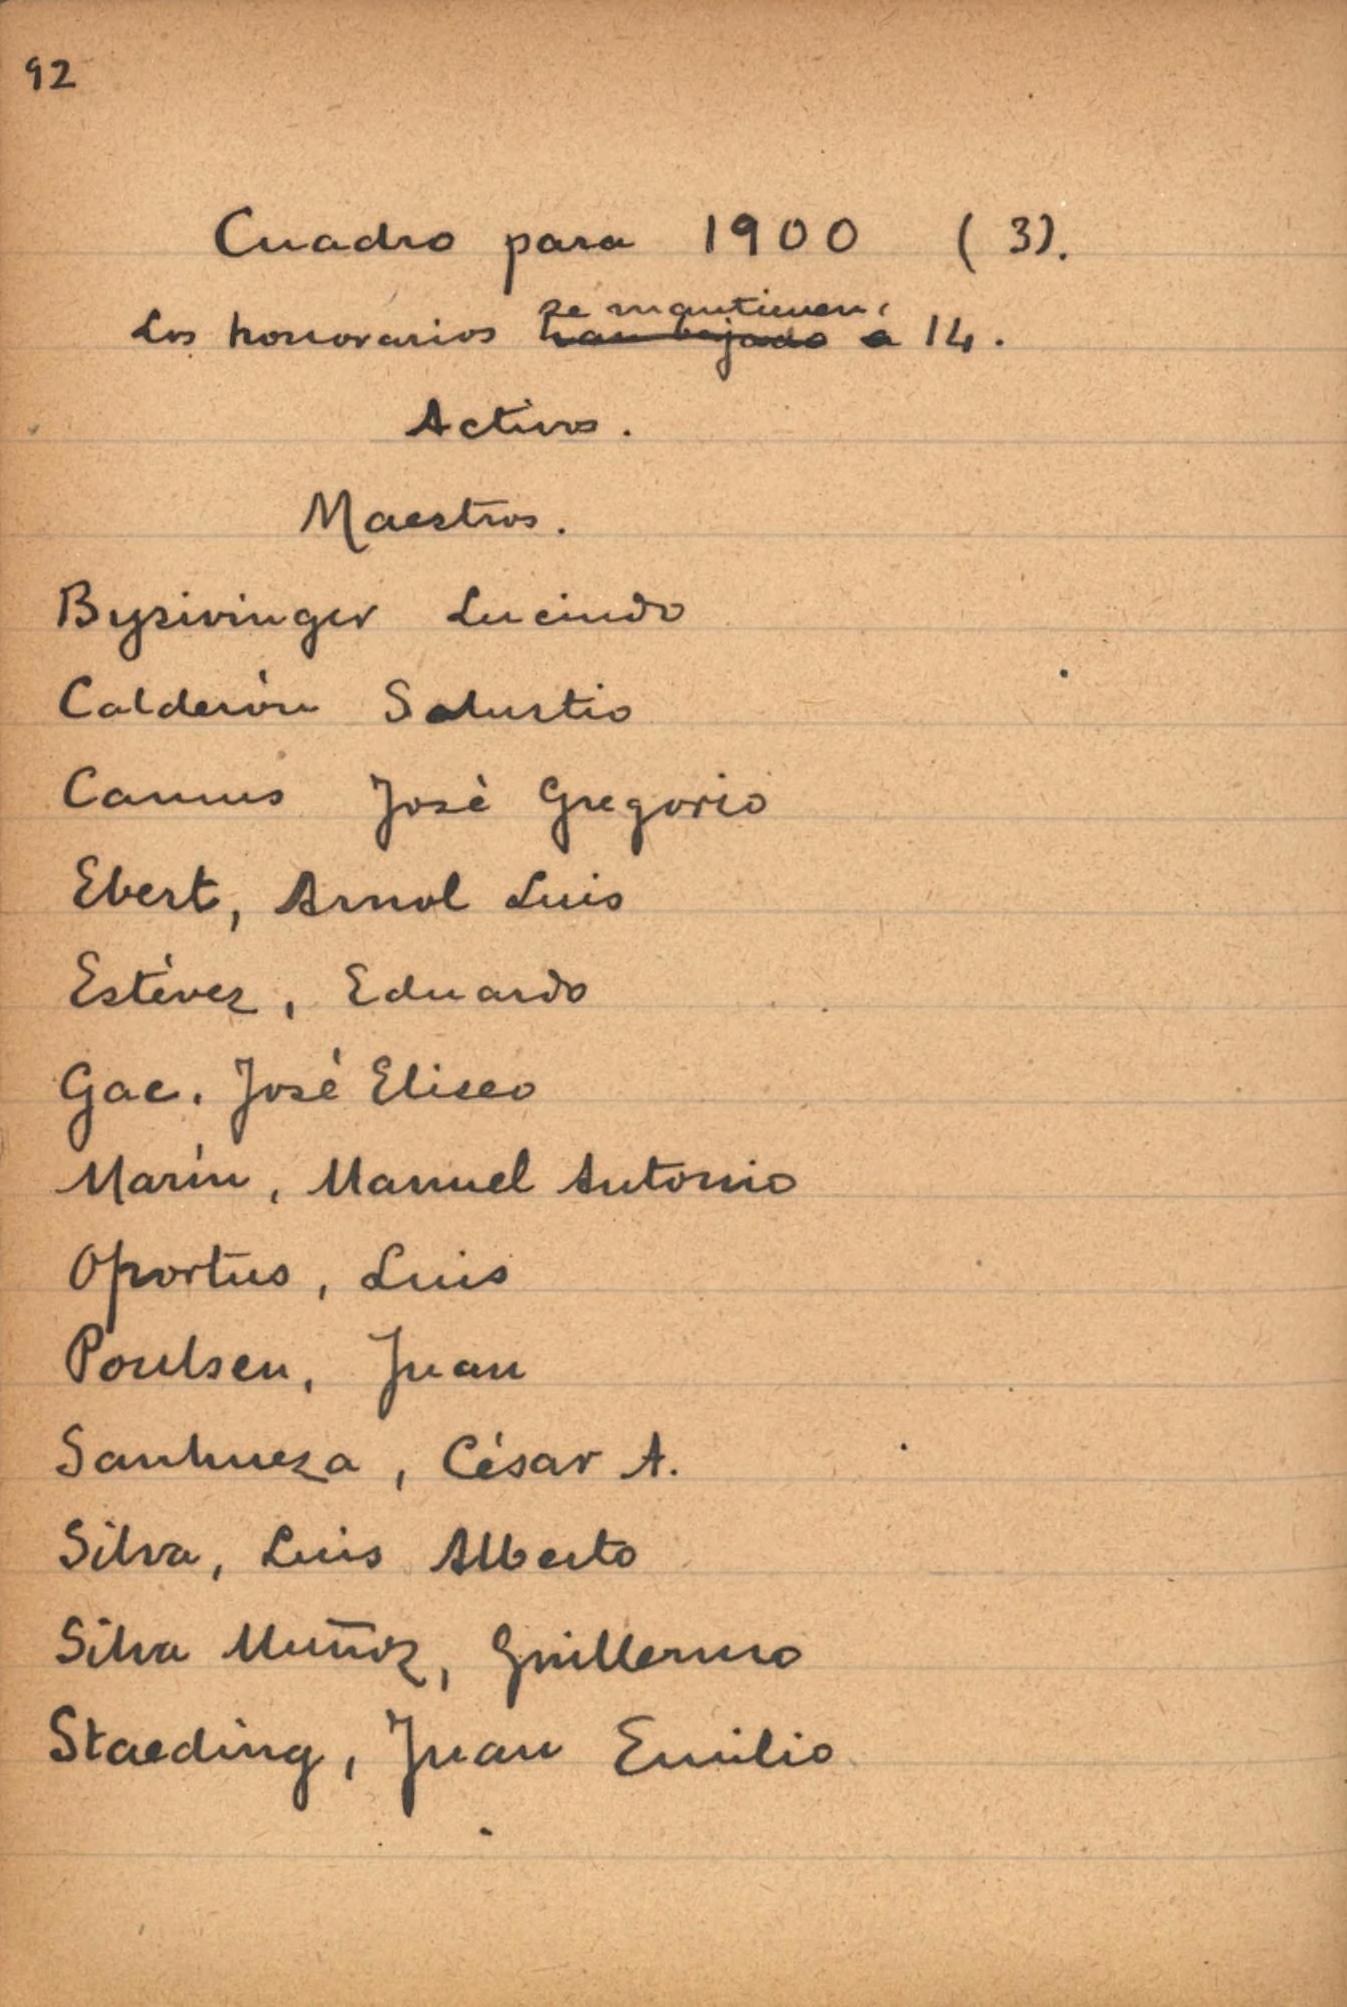 92
Cuadro para 1900 (3).
se mantienen:
Los honorarios han bajado a 14.
Activos.
Maestros.
Bysivinger Lucindo
Calderón Salustio
Camus José Gregorio
Ebert, Arnol Luis
Estévez, Eduardo
Gac. José Eliseo
Marín, Manuel Antonio
Oportus, Luis
Poulsen, Juan
Sanhueza, César A.
Silva, Luis Alberto
Silva Muñoz, Guillermo
Staeding, Juan Emilio